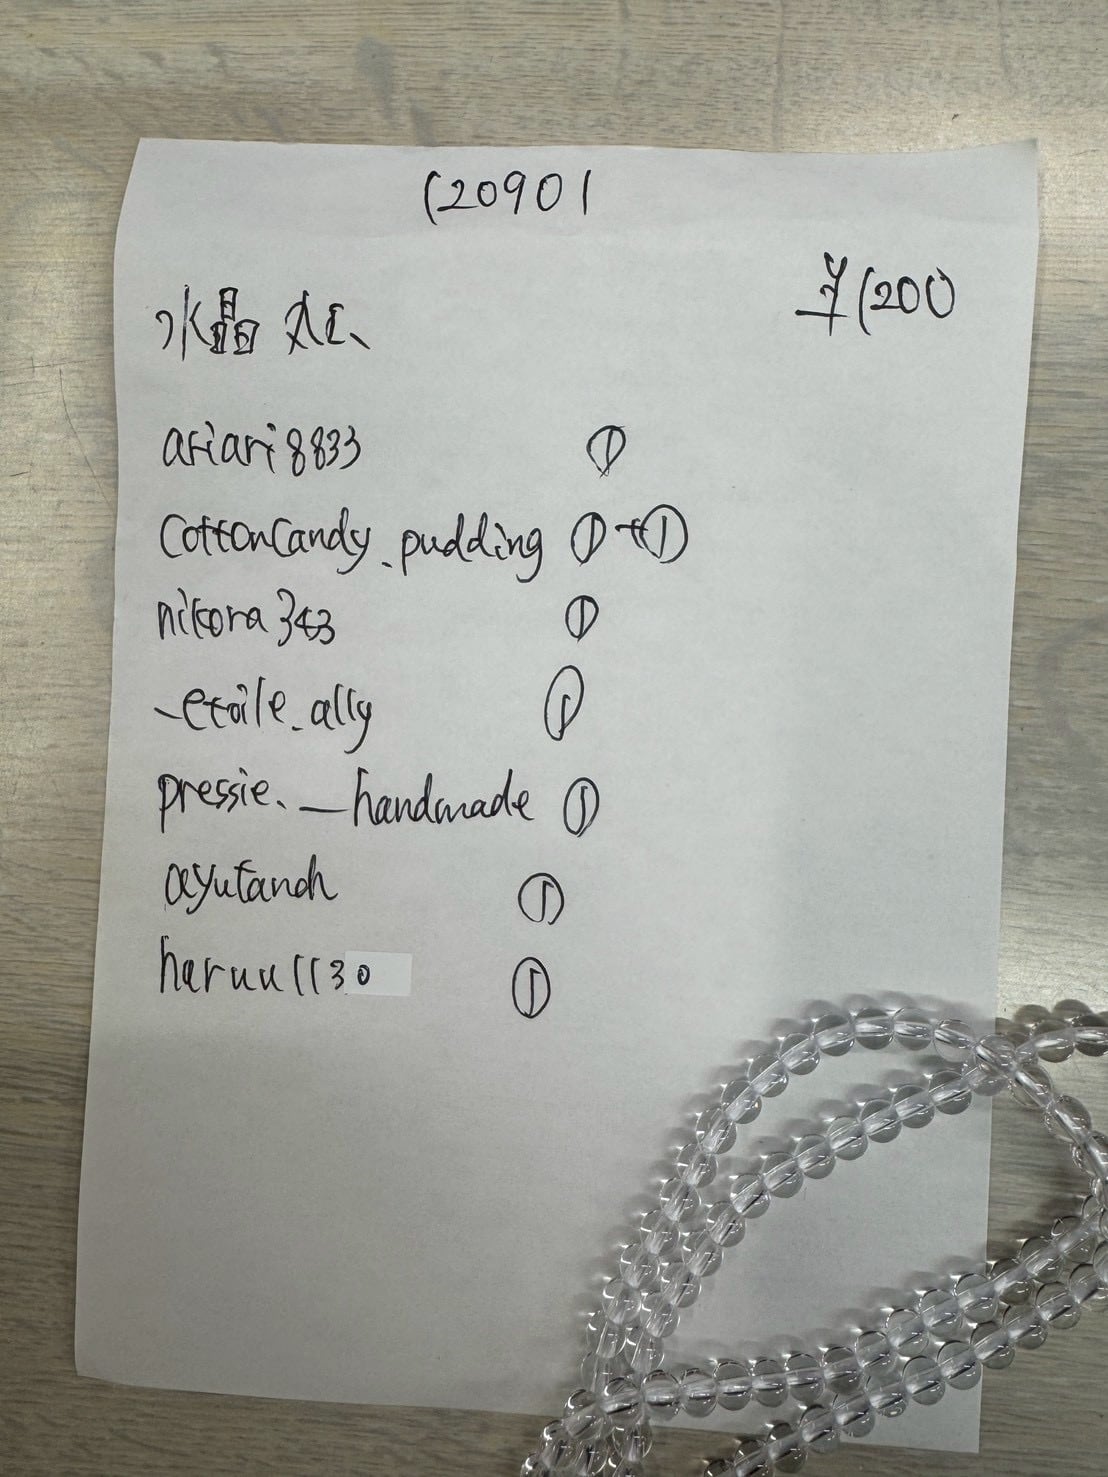 120901
¥1200
水晶 丸
ariari8833 ①
cottoncandy_pudding ①+①
nikora343 ①
_etoile_ally ①
pressie._handmade ①
ayutanoh ①
haruu1130 ①